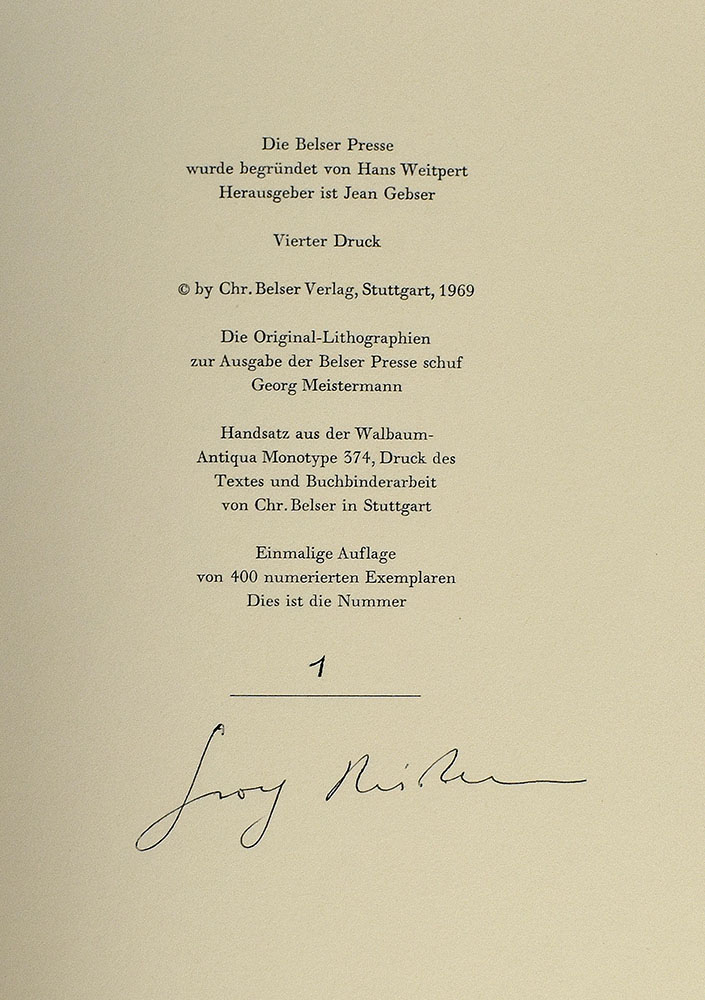 Die Belser Presse
wurde begründet von Hans Weitpert
Herausgeber ist Jean Gebser
Vierter Druck
© by Chr. Belser Verlag, Stuttgart, 1969
Die Original-Lithographien
zur Ausgabe der Belser Presse schuf
Georg Meistermann
Handsatz aus der Walbaum-
Antiqua Monotype 374, Druck des
Textes und Buchbinderarbeit
von Chr. Belser in Stuttgart
Einmalige Auflage
von 400 numerierten Exemplaren
Dies ist die Nummer
1
Georg